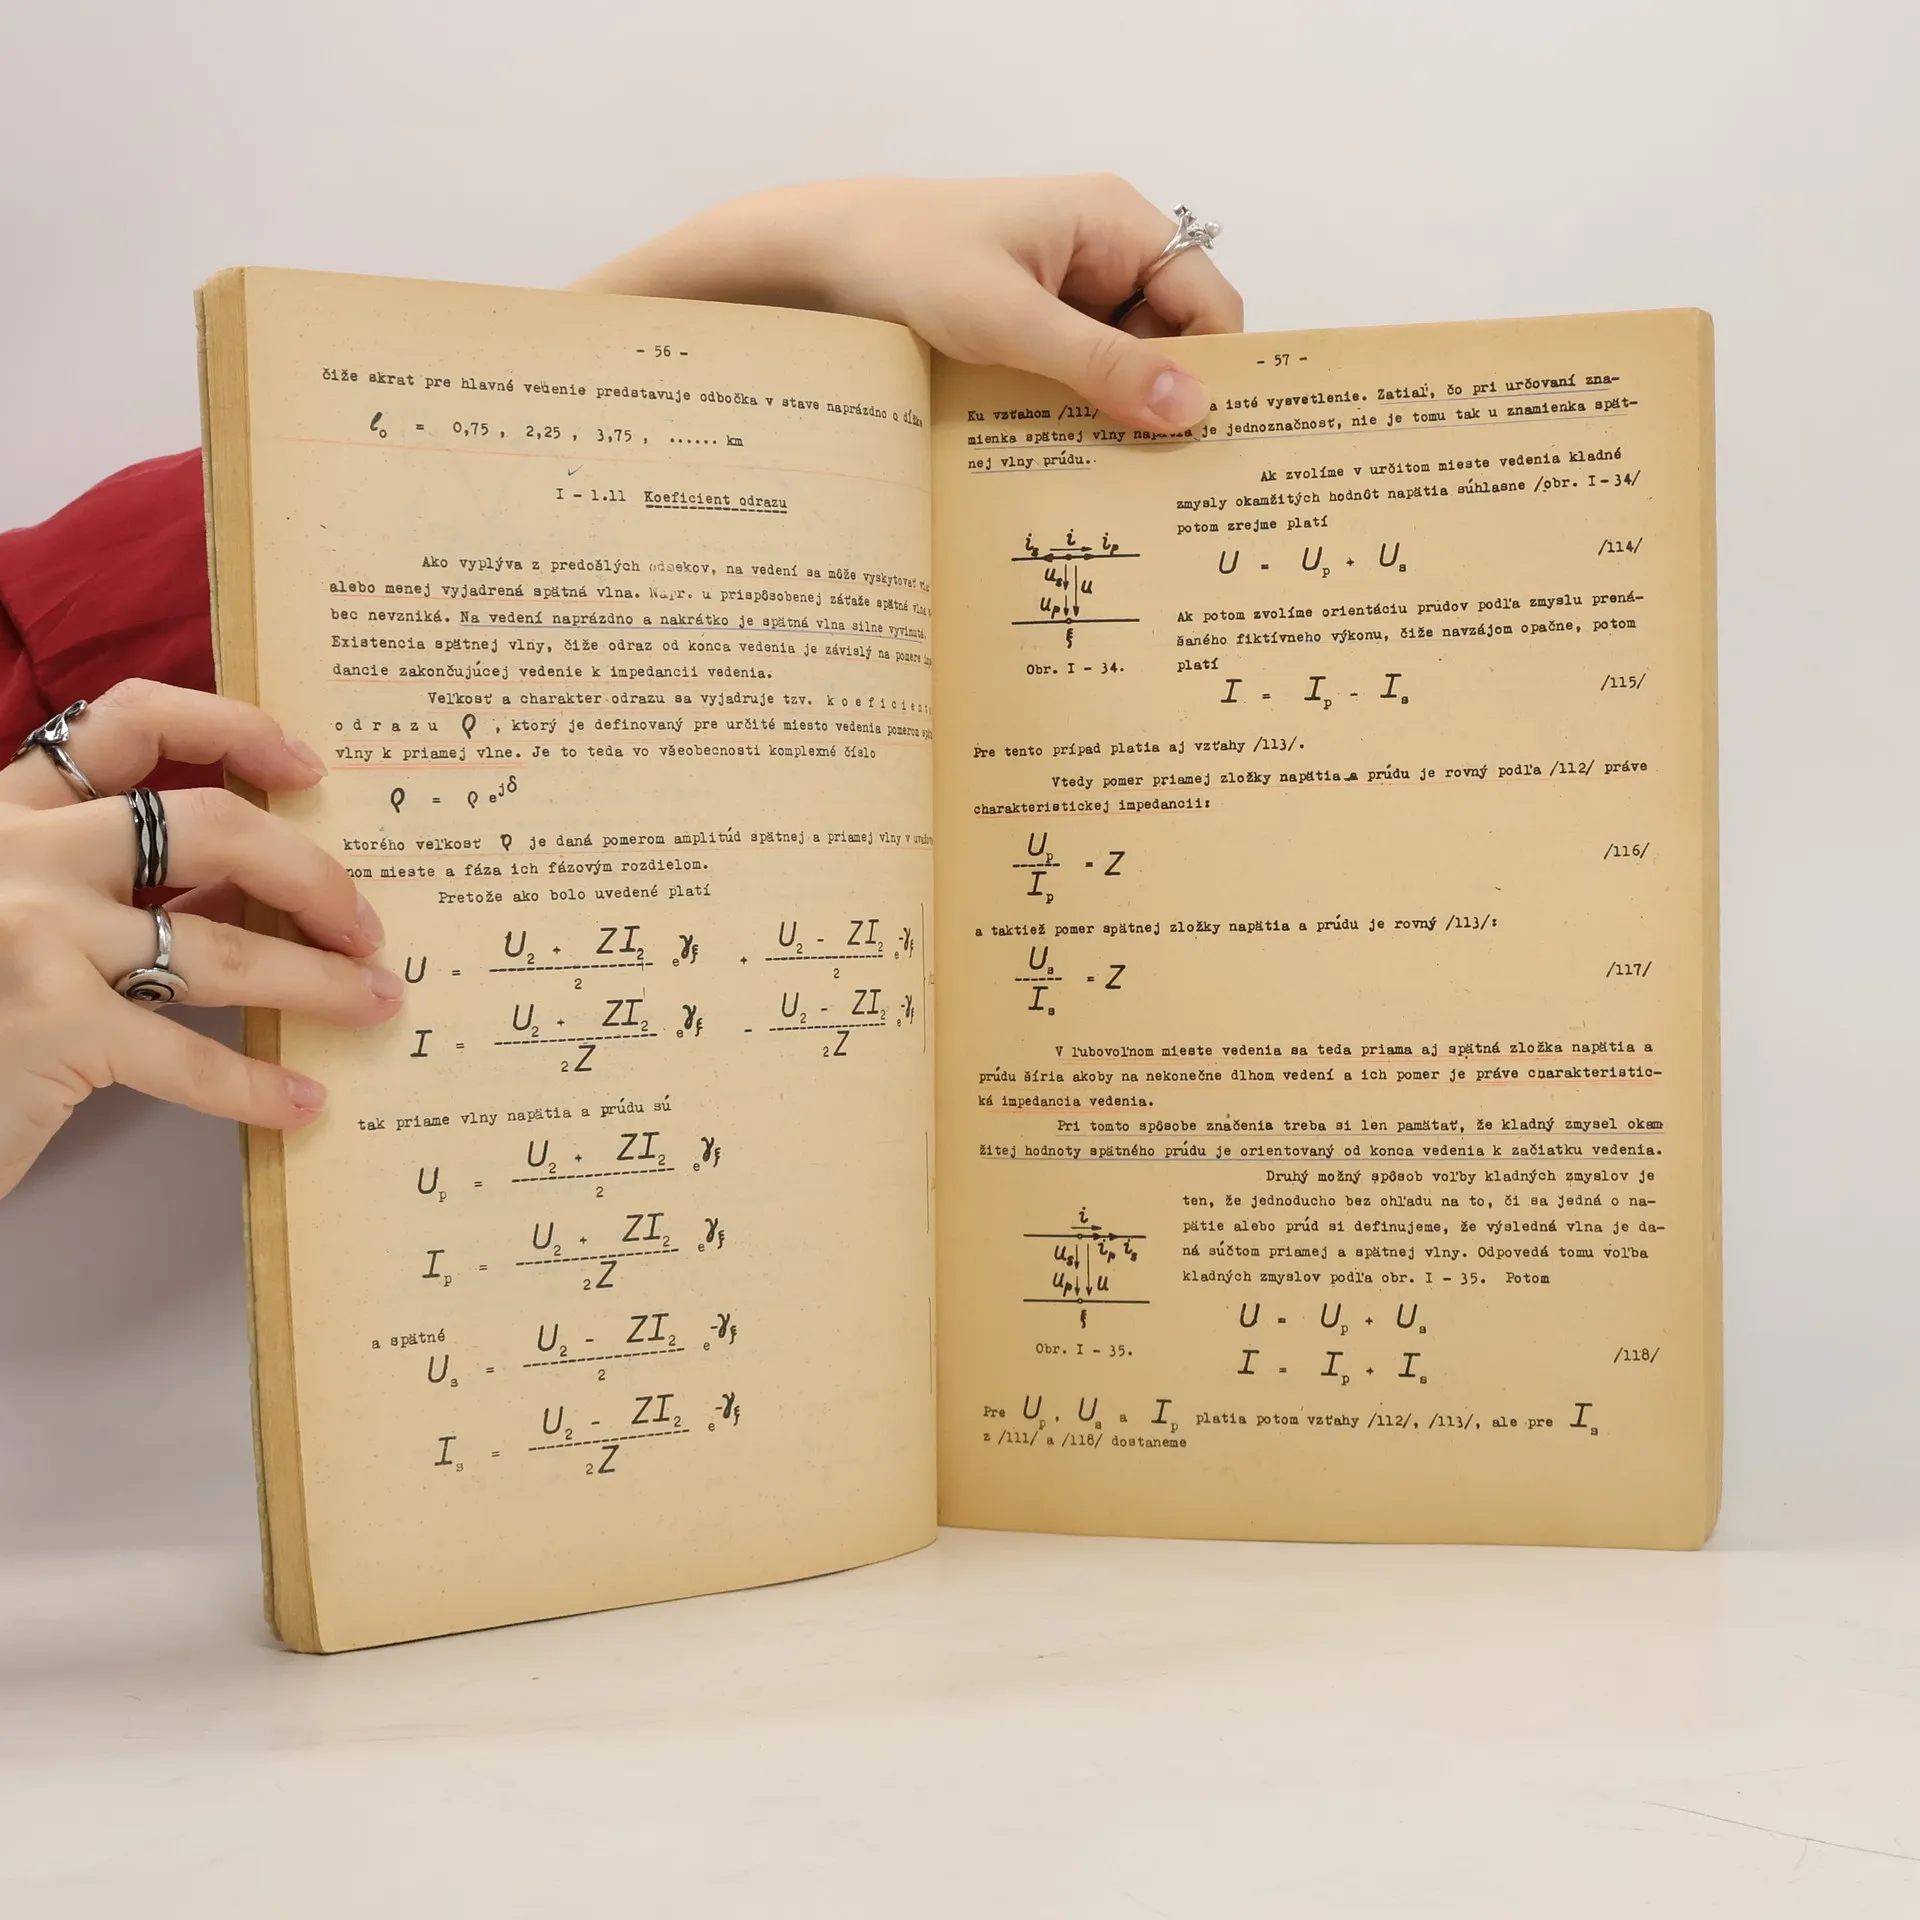 - 56 -
čiže skrat pre hlavné vedenie predstavuje odbočka v stave naprázdno o
ℓ₀ = 0,75 , 2,25 , 3,75 , ...... km
I - 1.11 Koeficient odrazu
Ako vyplýva z predošlých odsekov, na vedení sa môže vyskytovať
alebo menej vyjadrená spätná vlna. Napr. u prispôsobenej záťaže spätná vlna
bec nevzniká. Na vedení naprázdno a nakrátko je spätná vlna silne vyvinutá.
Existencia spätnej vlny, čiže odraz od konca vedenia je závislý na pomere
dancie zakončujúcej vedenie k impedancii vedenia.
Veľkosť a charakter odrazu sa vyjadruje tzv. k o e f i c i e n t
o d r a z u ϱ , ktorý je definovaný pre určité miesto vedenia pomerom
vlny k priamej vlne. Je to teda vo všeobecnosti komplexné číslo
ϱ = ϱ e^jδ
ktorého veľkosť ϱ je daná pomerom amplitúd spätnej a priamej vlny v
nom mieste a fáza ich fázovým rozdielom.
Pretože ako bolo uvedené platí
U = (U₂ + ZI₂)/2 e^γξ + (U₂ - ZI₂)/2 e^-γξ
I = (U₂ + ZI₂)/2Z e^γξ - (U₂ - ZI₂)/2Z e^-γξ
tak priame vlny napätia a prúdu sú
U_p = (U₂ + ZI₂)/2 e^γξ
I_p = (U₂ + ZI₂)/2Z e^γξ
a spätné
U_s = (U₂ - ZI₂)/2 e^-γξ
I_s = (U₂ - ZI₂)/2Z e^-γξ
- 57 -
Ku vzťahom /111/ a isté vysvetlenie. Zatiaľ, čo pri určovaní zna-
mienka spätnej vlny napätia je jednoznačnosť, nie je tomu tak u znamienka spät-
nej vlny prúdu.
Ak zvolíme v určitom mieste vedenia kladné
zmysly okamžitých hodnôt napätia súhlasne /obr. I-34/
potom zrejme platí
U = U_p + U_s /114/
i_s i i_p
u_s u
u_p
ξ
Obr. I - 34.
Ak potom zvolíme orientáciu prúdov podľa zmyslu prená-
šaného fiktívneho výkonu, čiže navzájom opačne, potom
platí
I = I_p - I_s /115/
Pre tento prípad platia aj vzťahy /113/.
Vtedy pomer priamej zložky napätia a prúdu je rovný podľa /112/ práve
charakteristickej impedancii:
U_p/I_p = Z /116/
a taktiež pomer spätnej zložky napätia a prúdu je rovný /113/:
U_s/I_s = Z /117/
V ľubovoľnom mieste vedenia sa teda priama aj spätná zložka napätia a
prúdu šíria akoby na nekonečne dlhom vedení a ich pomer je práve charakteristic-
ká impedancia vedenia.
Pri tomto spôsobe značenia treba si len pamätať, že kladný zmysel okam
žitej hodnoty spätného prúdu je orientovaný od konca vedenia k začiatku vedenia.
Druhý možný spôsob voľby kladných zmyslov je
ten, že jednoducho bez ohľadu na to, či sa jedná o na-
pätie alebo prúd si definujeme, že výsledná vlna je da-
ná súčtom priamej a spätnej vlny. Odpovedá tomu voľba
kladných zmyslov podľa obr. I - 35. Potom
i
u_s i_p i_s
u_p u
ξ
Obr. I - 35.
U = U_p + U_s
I = I_p + I_s /118/
Pre U_p, U_s a I_p platia potom vzťahy /112/, /113/, ale pre I_s
z /111/ a /118/ dostaneme